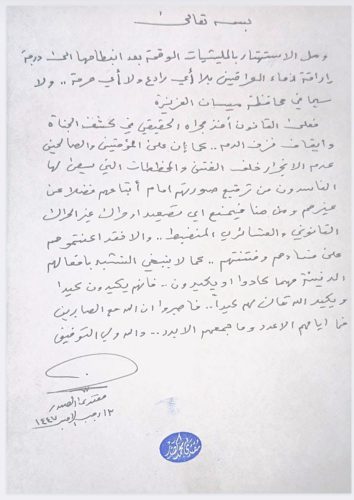 بسمه تعالى
وصل الاستهتار بالمليشيات الوقحة بعد انبطاحها الى درجة
إراقة دماء العراقيين بلا أي رادع ولا أي حرمة .. ولا
سيما في محافظة ميسان العزيزة
فعلى القانون أخذ مجراه الحقيقي في كشف الجناة
وإيقاف نزف الدم .. كما إن على المؤمنين والصالحين
عدم الانجرار خلف الفتن والمخططات التي يسعى لها
الفاسدون من ترقيع صورتهم أمام أتباعهم فضلاً عن
غيرهم ومن هنا فيمنع أي تصعيد أو حراك غير الحراك
القانوني والعشائري المنضبط .. والا فقد اعنتموهم
على فسادهم وفتنتهم .. كما لا ينبغي التشبه بأفعالهم
الدنيئة مهما كادوا أو يكيدون .. فإنهم يكيدون كيداً
ويكيد الله تعالى لهم كيداً .. فاصبروا ان الله مع الصابرين
فما أيامهم الا عدد وما جمعهم الا بدد .. والله ولي التوفيق
مقتدى الصدر
١٢ رجب الأصب ١٤٤٧